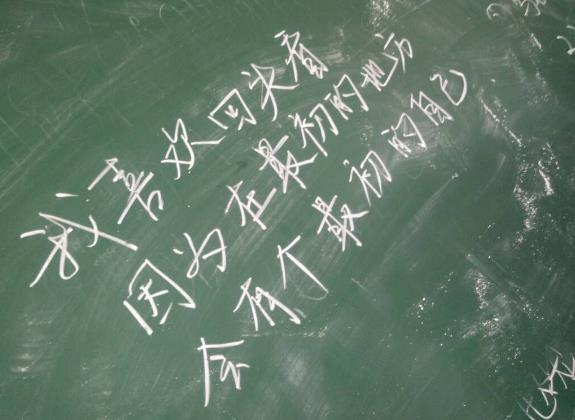 我喜欢回头看
因为在最初的地方
会有个最初的自己